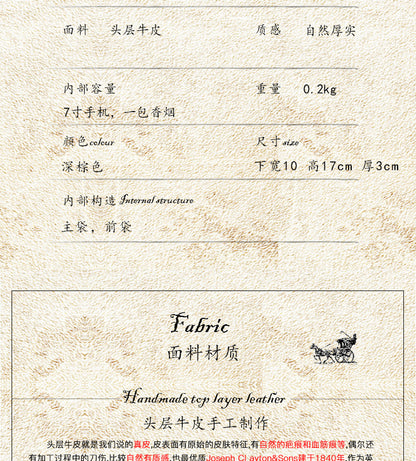 面料 头层牛皮 质感 自然厚实
内部容量 重量 0.2kg
7寸手机，一包香烟
颜色colour 尺寸size
深棕色 下宽10 高17cm 厚3cm
内部构造Internal structure
主袋，前袋
Fabric
面料材质
Handmade top layer leather
头层牛皮手工制作
头层牛皮就是我们说的真皮,皮表面有原始的皮肤特征,有自然的疤痕和血筋痕等,偶尔还
有加工过程中的刀伤,比较自然有质感,也最优质Joseph Cl ayton&Sons建于1840年,作为英